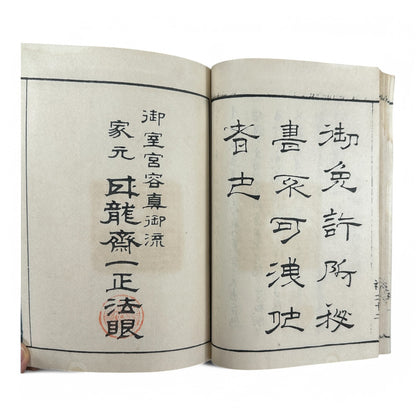 御免許所秘
書不可洩他
者也
御室宮容真御流
家元 臥龍齋一正法眼